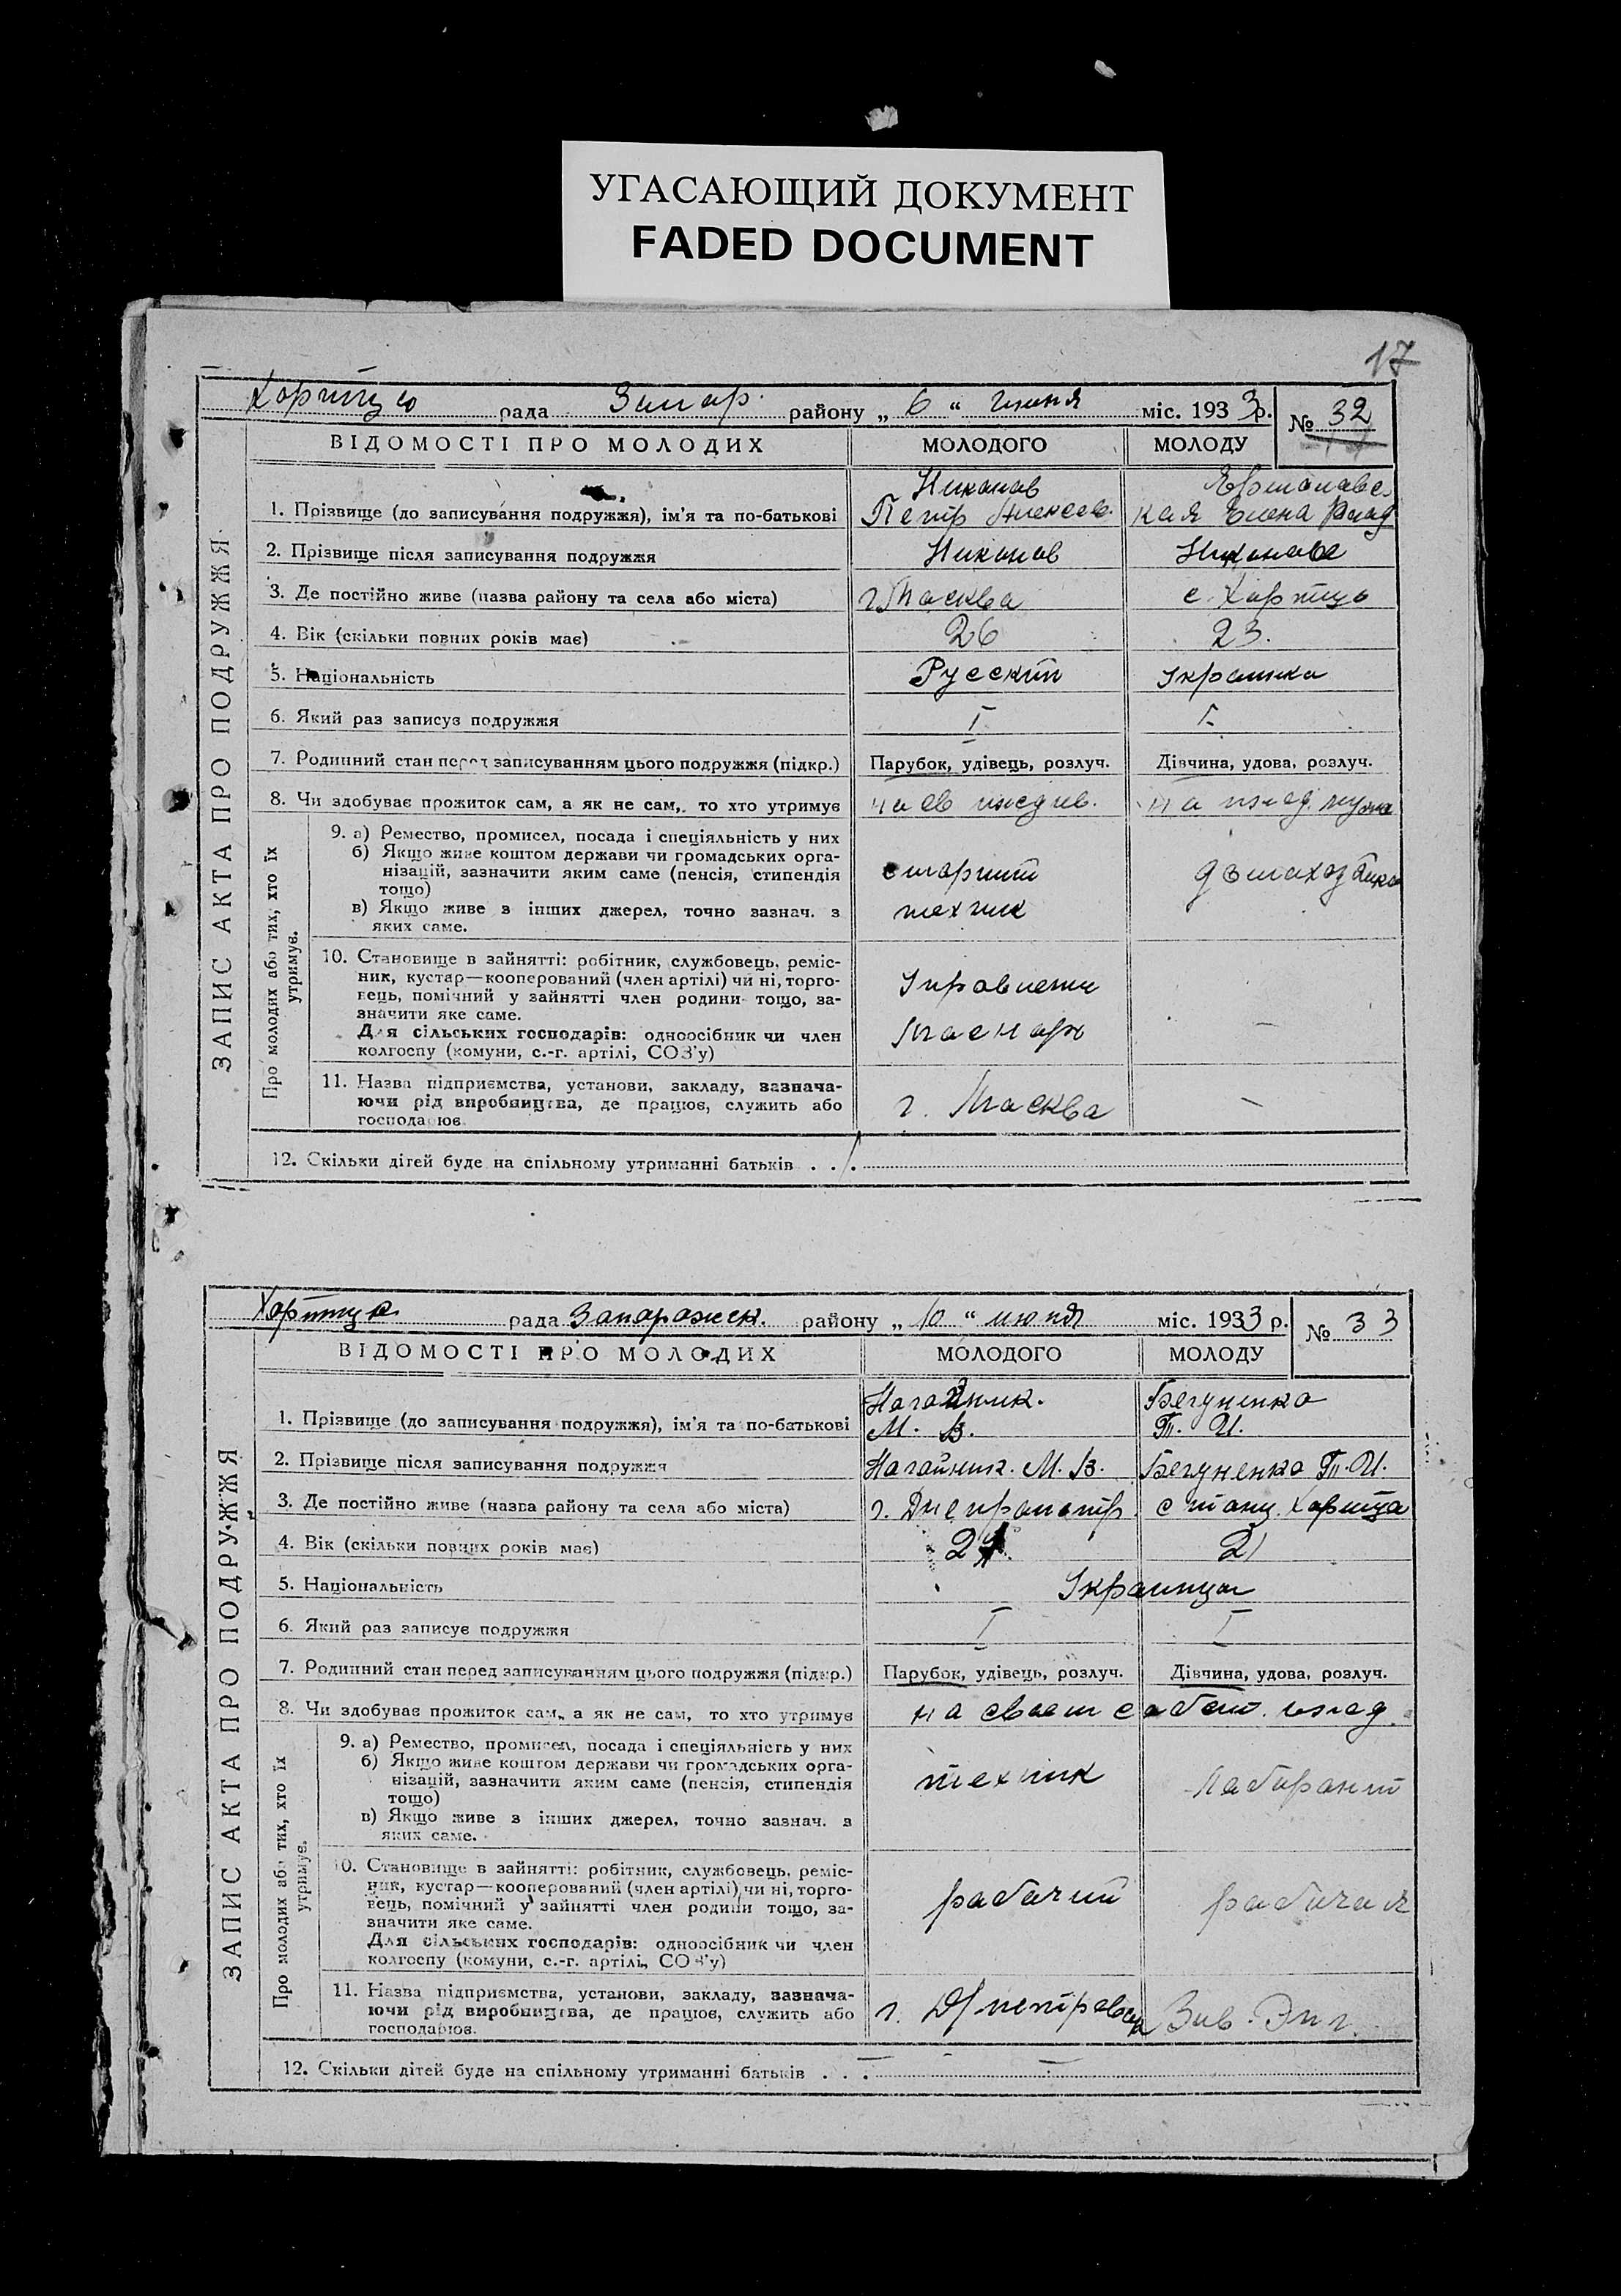 УГАСАЮЩИЙ ДОКУМЕНТ
FADED DOCUMENT
17
рада Запор. району „ 6 “ июня міс. 1933 р. № 32
ВІДОМОСТІ ПРО МОЛОДИХ МОЛОДОГО МОЛОДУ
ЗАПИС АКТА ПРО ПОДРУЖЖЯ
Никонов
1. Прізвище (до записування подружжя), ім'я та по-батькові Петр Алексеев. кая Елена
2. Прізвище після записування подружжя Никонов Никонова
3. Де постійно живе (назва району та села або міста) г. Москва с. Хортица
4. Вік (скільки повних років має) 26 23.
5. Національність Русский Украинка
6. Який раз записує подружжя I I
7. Родинний стан перед записуванням цього подружжя (підкр.) Парубок, удівець, розлуч. Дівчина, удова, розлуч.
8. Чи здобуває прожиток сам, а як не сам, то хто утримує на св иждив. на ижд. мужа
Про молодих або тих, хто їх утримує.
9. а) Ремество, промисел, посада і спеціяльність у них
б) Якщо живе коштом держави чи громадських орга-
нізацій, зазначити яким саме (пенсія, стипендія
тощо)
в) Якщо живе з інших джерел, точно зазнач. з
яких саме.
старший
техник
домохозяйка
10. Становище в зайнятті: робітник, службовець, реміс-
ник, кустар—кооперований (член артілі) чи ні, торго-
вець, помічний у зайнятті член родини тощо, за-
значити яке саме.
Для сільських господарів: одноосібник чи член
колгоспу (комуни, с.-г. артілі, СОЗ'у)
–
11. Назва підприємства, установи, закладу, зазнача-
ючи рід виробництва, де працює, служить або
господарює.
г. Москва –
12. Скільки дітей буде на спільному утриманні батьків . . .
Хортица рада Запорожск. району „ 10 “ июня міс. 1933 р. № 33
ВІДОМОСТІ ПРО МОЛОДИХ МОЛОДОГО МОЛОДУ
ЗАПИС АКТА ПРО ПОДРУЖЖЯ
Нагайник. Бегуненко
1. Прізвище (до записування подружжя), ім'я та по-батькові М. В. Т. И.
2. Прізвище після записування подружжя Нагайник. М. В. Бегуненко Т. И.
3. Де постійно живе (назва району та села або міста) г. Днепропетр. станц. Хортица
4. Вік (скільки повних років має) 21
5. Національність Украинцы
6. Який раз записує подружжя I I
7. Родинний стан перед записуванням цього подружжя (підкр.) Парубок, удівець, розлуч. Дівчина, удова, розлуч.
8. Чи здобуває прожиток сам, а як не сам, то хто утримує на своем собств. ижд.
Про молодих або тих, хто їх утримує.
9. а) Ремество, промисел, посада і спеціяльність у них
б) Якщо живе коштом держави чи громадських орга-
нізацій, зазначити яким саме (пенсія, стипендія
тощо)
в) Якщо живе з інших джерел, точно зазнач. з
яких саме.
техник Лаборант
10. Становище в зайнятті: робітник, службовець, реміс-
ник, кустар—кооперований (член артілі) чи ні, торго-
вець, помічний у зайнятті член родини тощо, за-
значити яке саме.
Для сільських господарів: одноосібник чи член
колгоспу (комуни, с.-г. артілі, СОЗ'у)
рабочий рабочая
11. Назва підприємства, установи, закладу, зазнача-
ючи рід виробництва, де працює, служить або
господарює.
г.
12. Скільки дітей буде на спільному утриманні батьків . . .